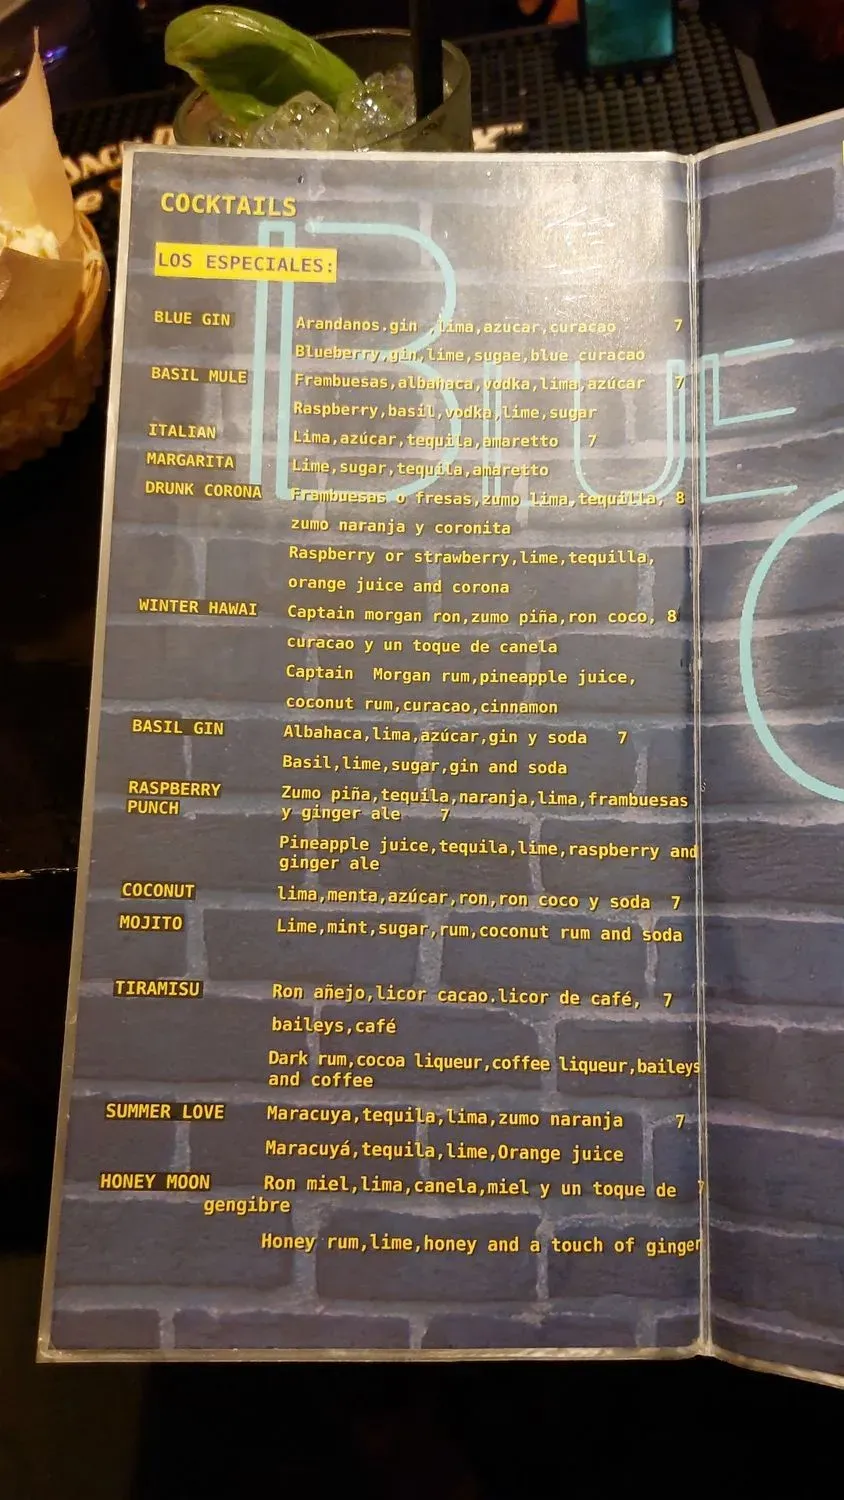 COCKTAILS
LOS ESPECIALES:
BLUE GIN Arandanos.gin ,lima,azucar,curacao 7
Blueberry,gin,lime,sugae,blue curacao
BASIL MULE Frambuesas,albahaca,vodka,lima,azúcar 7
Raspberry,basil,vodka,lime,sugar
ITALIAN Lima,azúcar,tequila,amaretto 7
MARGARITA Lime,sugar,tequila,amaretto
DRUNK CORONA Frambuesas o fresas,zumo lima,tequilla, 8
zumo naranja y coronita
Raspberry or strawberry,lime,tequilla,
orange juice and corona
WINTER HAWAI Captain morgan ron,zumo piña,ron coco, 8
curacao y un toque de canela
Captain Morgan rum,pineapple juice,
coconut rum,curacao,cinnamon
BASIL GIN Albahaca,lima,azúcar,gin y soda 7
Basil,lime,sugar,gin and soda
RASPBERRY Zumo piña,tequila,naranja,lima,frambuesas
PUNCH y ginger ale 7
Pineapple juice,tequila,lime,raspberry and
ginger ale
COCONUT lima,menta,azúcar,ron,ron coco y soda 7
MOJITO Lime,mint,sugar,rum,coconut rum and soda
TIRAMISU Ron añejo,licor cacao.licor de café, 7
baileys,café
Dark rum,cocoa liqueur,coffee liqueur,baileys
and coffee
SUMMER LOVE Maracuya,tequila,lima,zumo naranja 7
Maracuyá,tequila,lime,Orange juice
HONEY MOON Ron miel,lima,canela,miel y un toque de 7
gengibre
Honey rum,lime,honey and a touch of ginger
BLUE
JACK